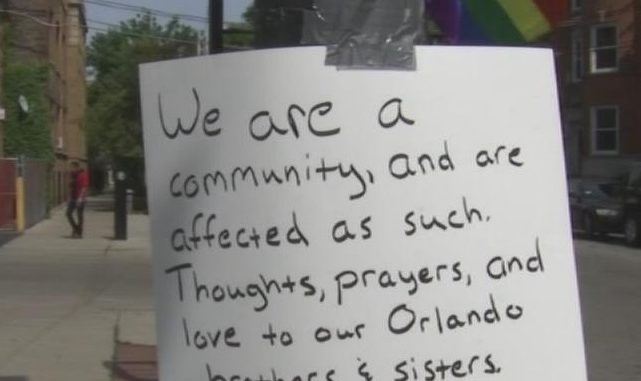 We are a
community, and are
affected as such.
Thoughts, prayers, and
love to our Orlando
brothers & sisters.